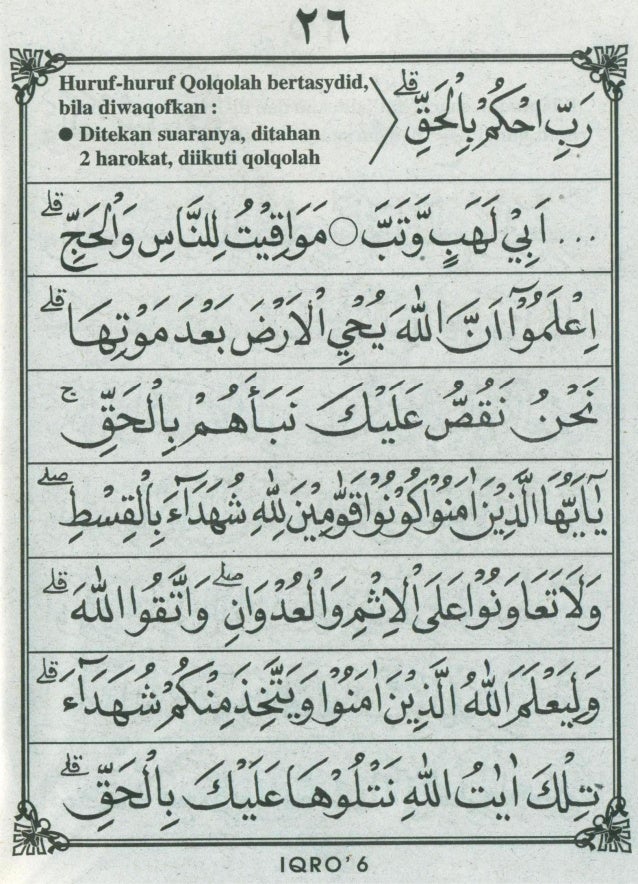 ٢٦
Huruf-huruf Qolqolah bertasydid,
bila diwaqofkan :
● Ditekan suaranya, ditahan
2 harokat, diikuti qolqolah
رَبِّ احْكُمْ بِالْحَقِّ ۗ
... اَبِيْ لَهَبٍ وَّتَبَّ ○ مَوَاقِيْتُ لِلنَّاسِ وَالْحَجِّ ۗ
اِعْلَمُوْٓا اَنَّ اللّٰهَ يُحْيِ الْاَرْضَ بَعْدَ مَوْتِهَا ۗ
نَحْنُ نَقُصُّ عَلَيْكَ نَبَأَهُمْ بِالْحَقِّ ۚ
يٰٓاَيُّهَا الَّذِيْنَ اٰمَنُوْا كُوْنُوْا قَوّٰمِيْنَ لِلّٰهِ شُهَدَآءَ بِالْقِسْطِ ۖ
وَلَا تَعَاوَنُوْا عَلَى الْاِثْمِ وَالْعُدْوَانِ ۖ وَاتَّقُوا اللّٰهَ ۗ
وَلِيَعْلَمَ اللّٰهُ الَّذِيْنَ اٰمَنُوْا وَيَتَّخِذَ مِنْكُمْ شُهَدَآءَ ۗ
تِلْكَ اٰيٰتُ اللّٰهِ نَتْلُوْهَا عَلَيْكَ بِالْحَقِّ ۗ
IQRO' 6